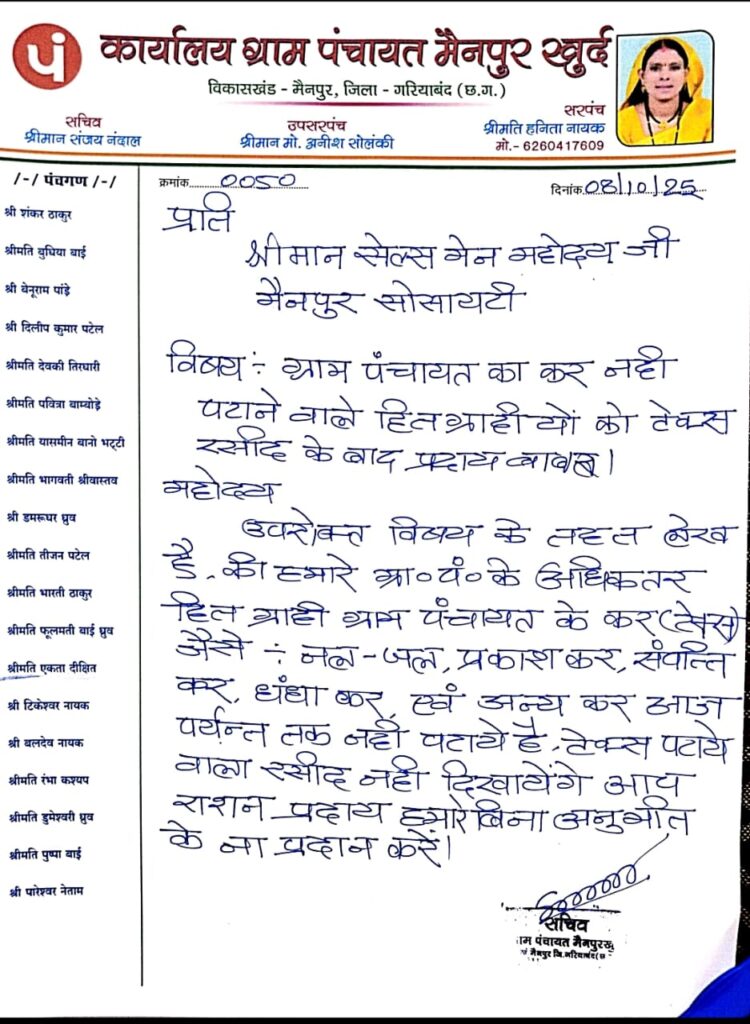 पं
कार्यालय ग्राम पंचायत मैनपुर खुर्द
विकासखंड - मैनपुर, जिला - गरियाबंद (छ.ग.)
सचिव
श्रीमान संजय नंदाल
उपसरपंच
श्रीमान मो. अनीश सोलंकी
सरपंच
श्रीमति हनिता नायक
मो.- 6260417609
/-/ पंचगण /-/
श्री शंकर ठाकुर
श्रीमति बुधिया बाई
श्री बेनूराम पांड़े
श्री दिलीप कुमार पटेल
श्रीमति देवकी तिरधारी
श्रीमति पवित्रा बाम्बोड़े
श्रीमति यासमीन बानो भट्टी
श्रीमति भागवती श्रीवास्तव
श्री डमरूधर ध्रुव
श्रीमति तीजन पटेल
श्रीमति भारती ठाकुर
श्रीमति फूलमती बाई ध्रुव
श्रीमति एकता दीक्षित
श्री टिकेश्वर नायक
श्री बलदेव नायक
श्रीमति रंभा कश्यप
श्रीमति डुमेश्वरी ध्रुव
श्रीमति पुष्पा बाई
श्री पारेश्वर नेताम
क्रमांक 0050 दिनांक 08/10/25
प्रति
श्रीमान सेल्स मेन महोदय जी
मैनपुर सोसायटी
विषय :- ग्राम पंचायत का कर नही
पटाने वाले हितग्राहीयों को टेक्स
रसीद के बाद प्रदाय बाबत्।
महोदय
उपरोक्त विषय के तहत लेख
है, की हमारे ग्रा० पं० के अधिकतर
हितग्राही ग्राम पंचायत के कर (टेक्स)
जैसे :- नल-जल, प्रकाश कर, संपत्ति
कर, धंधा कर, एवं अन्य कर आज
पर्यन्त तक नही पटाये है, टेक्स पटाये
वाला रसीद नही दिखायेंगे आप
राशन प्रदाय हमारे बिना अनुमति
के ना प्रदान करें।
सचिव
ग्राम पंचायत मैनपुरखु
मैनपुर जि.गरियाबंद(छ